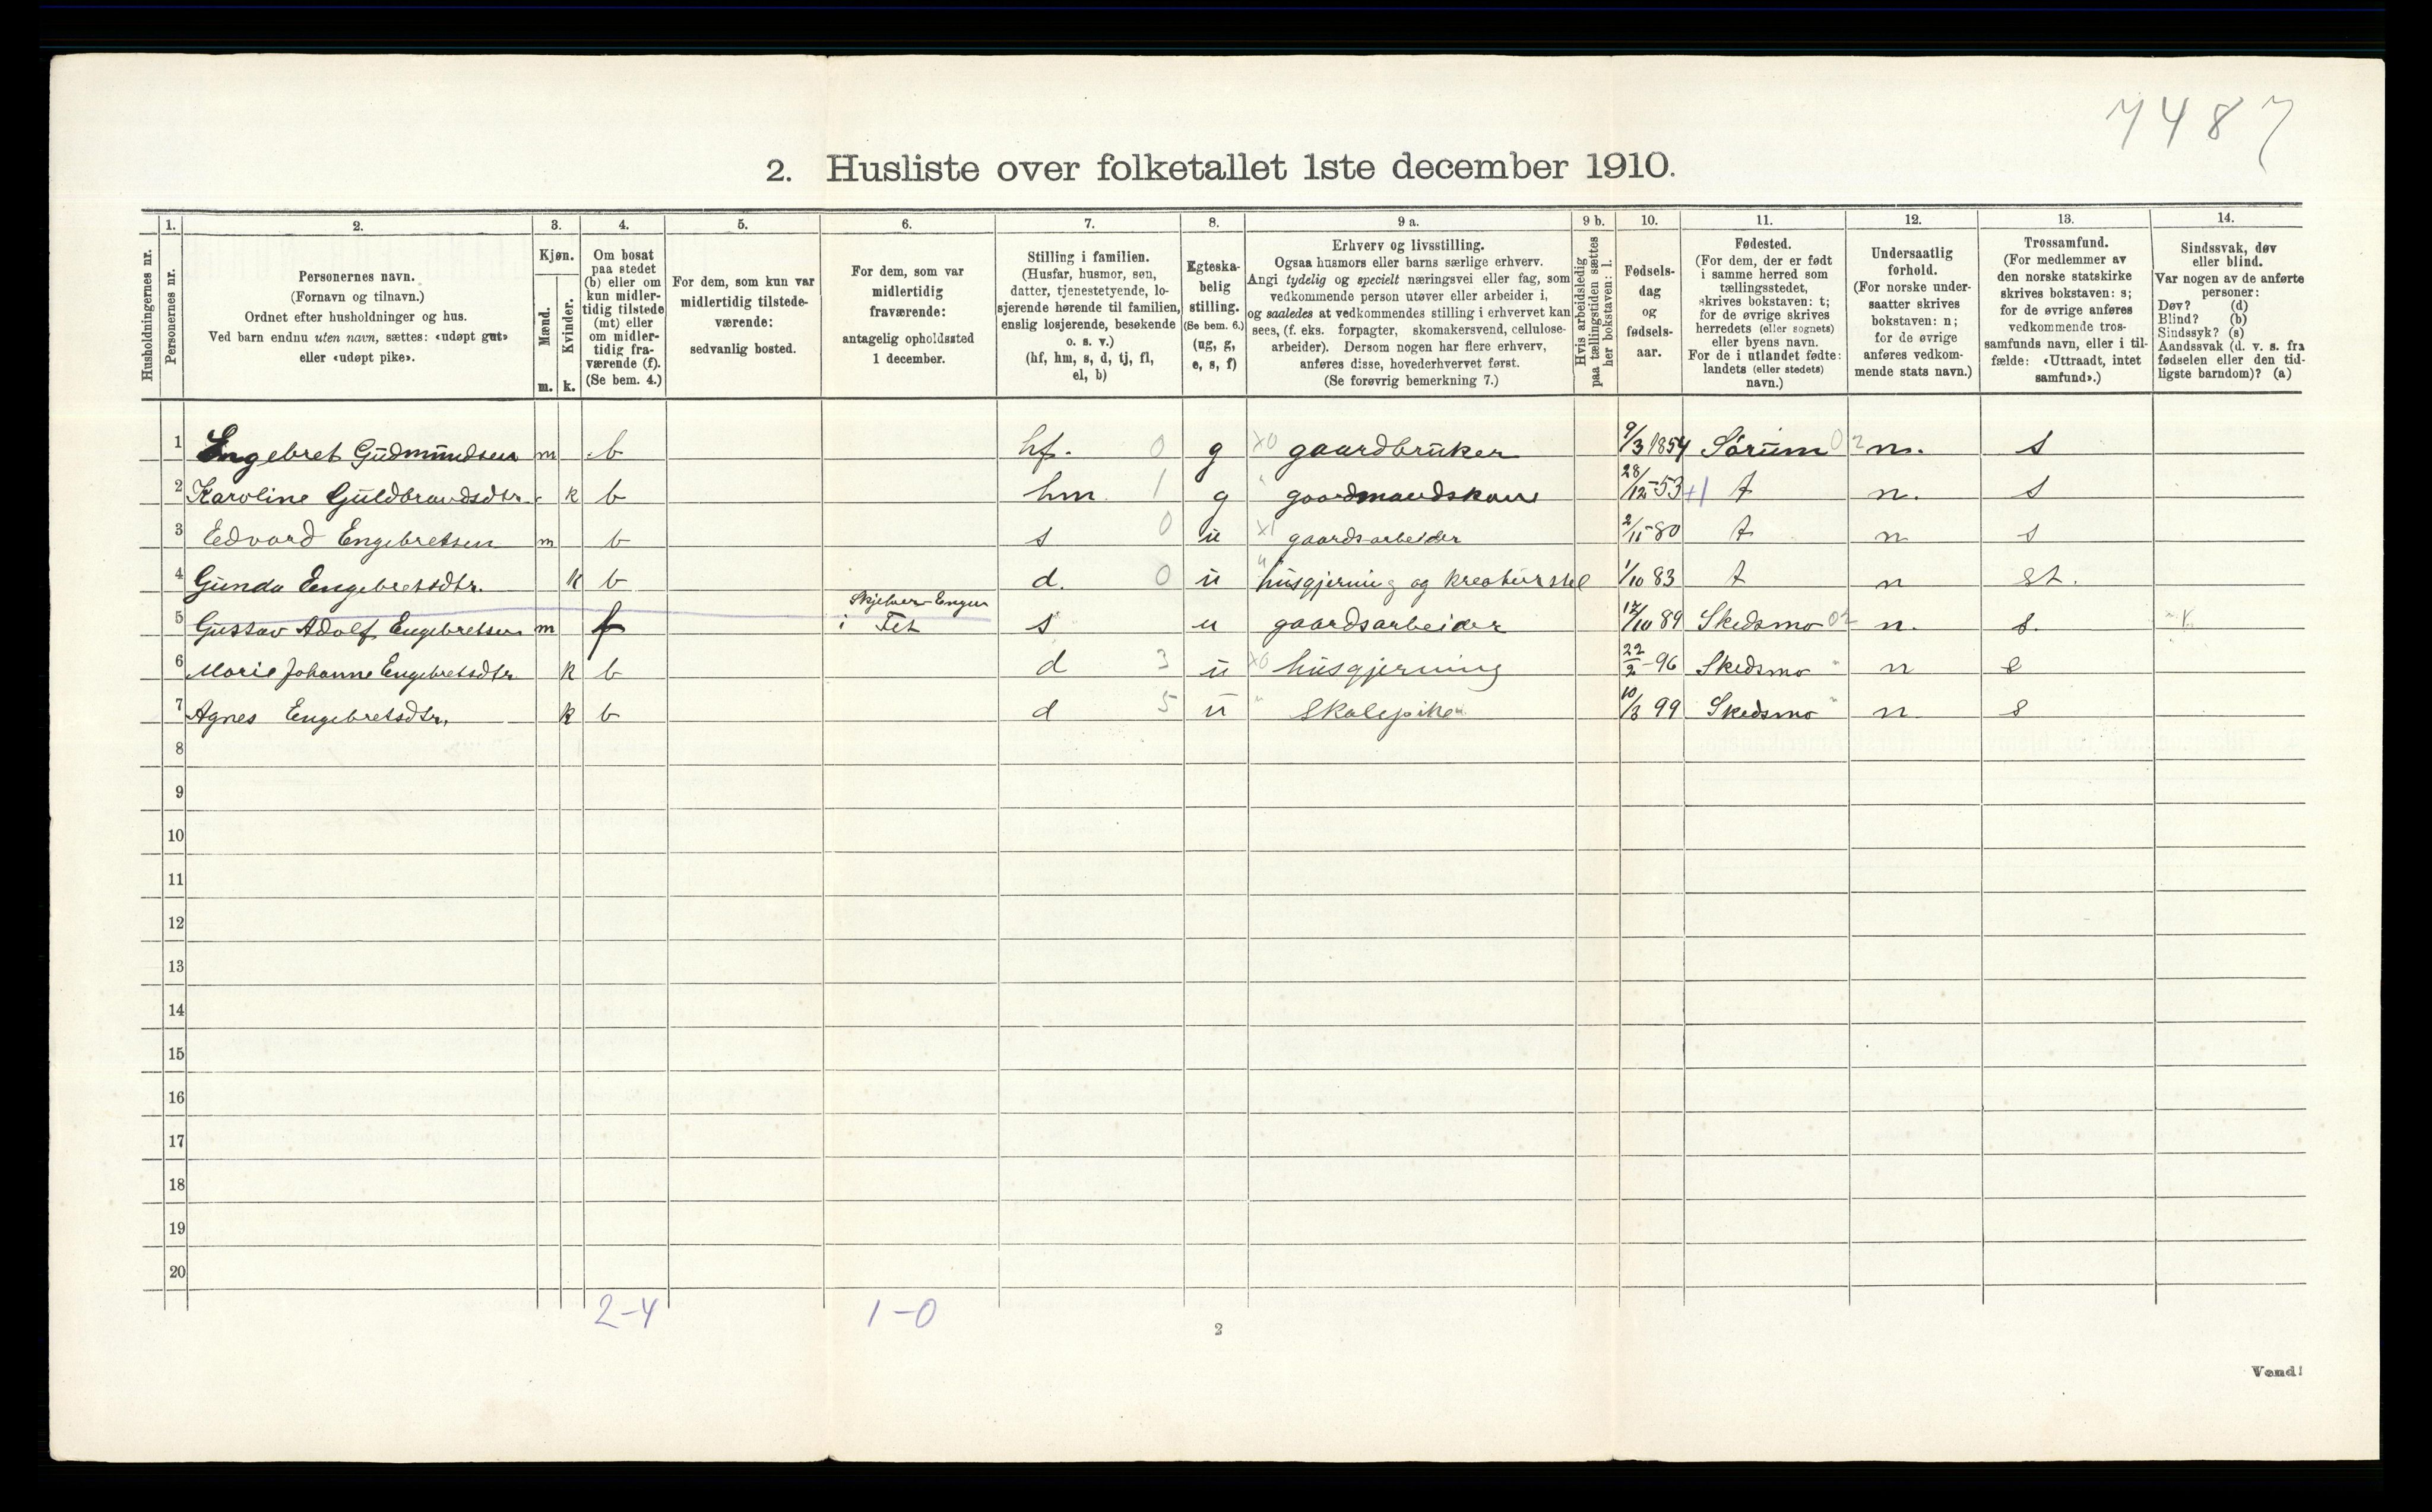 7487
2. Husliste over folketallet 1ste december 1910.
Husholdningernes nr.
1.
Personernes nr.
2.
Personernes navn.
(Fornavn og tilnavn.)
Ordnet efter husholdninger og hus.
Ved barn endnu uten navn, sættes: «udøpt gut»
eller «udøpt pike».
3.
Kjøn.
Mænd.
Kvinder.
m. k.
4.
Om bosat
paa stedet
(b) eller om
kun midler-
tidig tilstede
(mt) eller
om midler-
tidig fra-
værende (f).
(Se bem. 4.)
5.
For dem, som kun var
midlertidig tilstede-
værende:
sedvanlig bosted.
6.
For dem, som var
midlertidig
fraværende:
antagelig opholdssted
1 december.
7.
Stilling i familien.
(Husfar, husmor, søn,
datter, tjenestetyende, lo-
sjerende hørende til familien,
enslig losjerende, besøkende
o. s. v.)
(hf, hm, s, d, tj, fl,
el, b)
8.
Egteska-
belig
stilling.
(Se bem. 6.)
(ug, g,
e, s, f)
9 a.
Erhverv og livsstilling.
Ogsaa husmors eller barns særlige erhverv.
Angi tydelig og specielt næringsvei eller fag, som
vedkommende person utøver eller arbeider i,
og saaledes at vedkommendes stilling i erhvervet kan
sees, (f. eks. forpagter, skomakersvend, cellulose-
arbeider). Dersom nogen har flere erhverv,
anføres disse, hovederhvervet først.
(Se forøvrig bemerkning 7.)
9 b.
Hvis arbeidsledig
paa tællingstiden sættes
her bokstaven: l.
10.
Fødsels-
dag
og
fødsels-
aar.
11.
Fødested.
(For dem, der er født
i samme herred som
tællingsstedet,
skrives bokstaven: t;
for de øvrige skrives
herredets (eller sognets)
eller byens navn.
For de i utlandet fødte:
landets (eller stedets)
navn.)
12.
Undersaatlig
forhold.
(For norske under-
saatter skrives
bokstaven: n;
for de øvrige
anføres vedkom-
mende stats navn.)
13.
Trossamfund.
(For medlemmer av
den norske statskirke
skrives bokstaven: s;
for de øvrige anføres
vedkommende tros-
samfunds navn, eller i til-
fælde: «Uttraadt, intet
samfund».)
14.
Sindssvak, døv
eller blind.
Var nogen av de anførte
personer:
Døv? (d)
Blind? (b)
Sindssyk? (s)
Aandssvak (d. v. s. fra
fødselen eller den tid-
ligste barndom)? (a)
1 Engebret Gudmundsen m b hf. 0 g X0 gaardbruker 9/3 1854 Sørum 02 n. s
2 Karoline Guldbrandsdtr. k b hm 1 g " gaardmandskone 28/12-53 +1 t n. s
3 Edvard Engebretsen m b s 0 u X1 gaardsarbeider 2/11-80 t n s
4 Gunda Engebretsdtr. k b d. 0 u " husgjerning og kreaturstel 1/10 83 t n st.
Skjelver-Engen
5 Gustav Adolf Engebretsen m f i Fet s u gaardsarbeider 17/10 89 Skedsmo 02 n. s.
6 Marie Johanne Engebretsdtr k b d 3 u X6 husgjerning 22/2-96 Skedsmo " n s
7 Agnes Engebretsdtr. k b d 5 u " Skolepike 10/3 99 Skedsmo " n s
8
9
10
11
12
13
14
15
16
17
18
19
20
2-4 1-0
2
Vend!